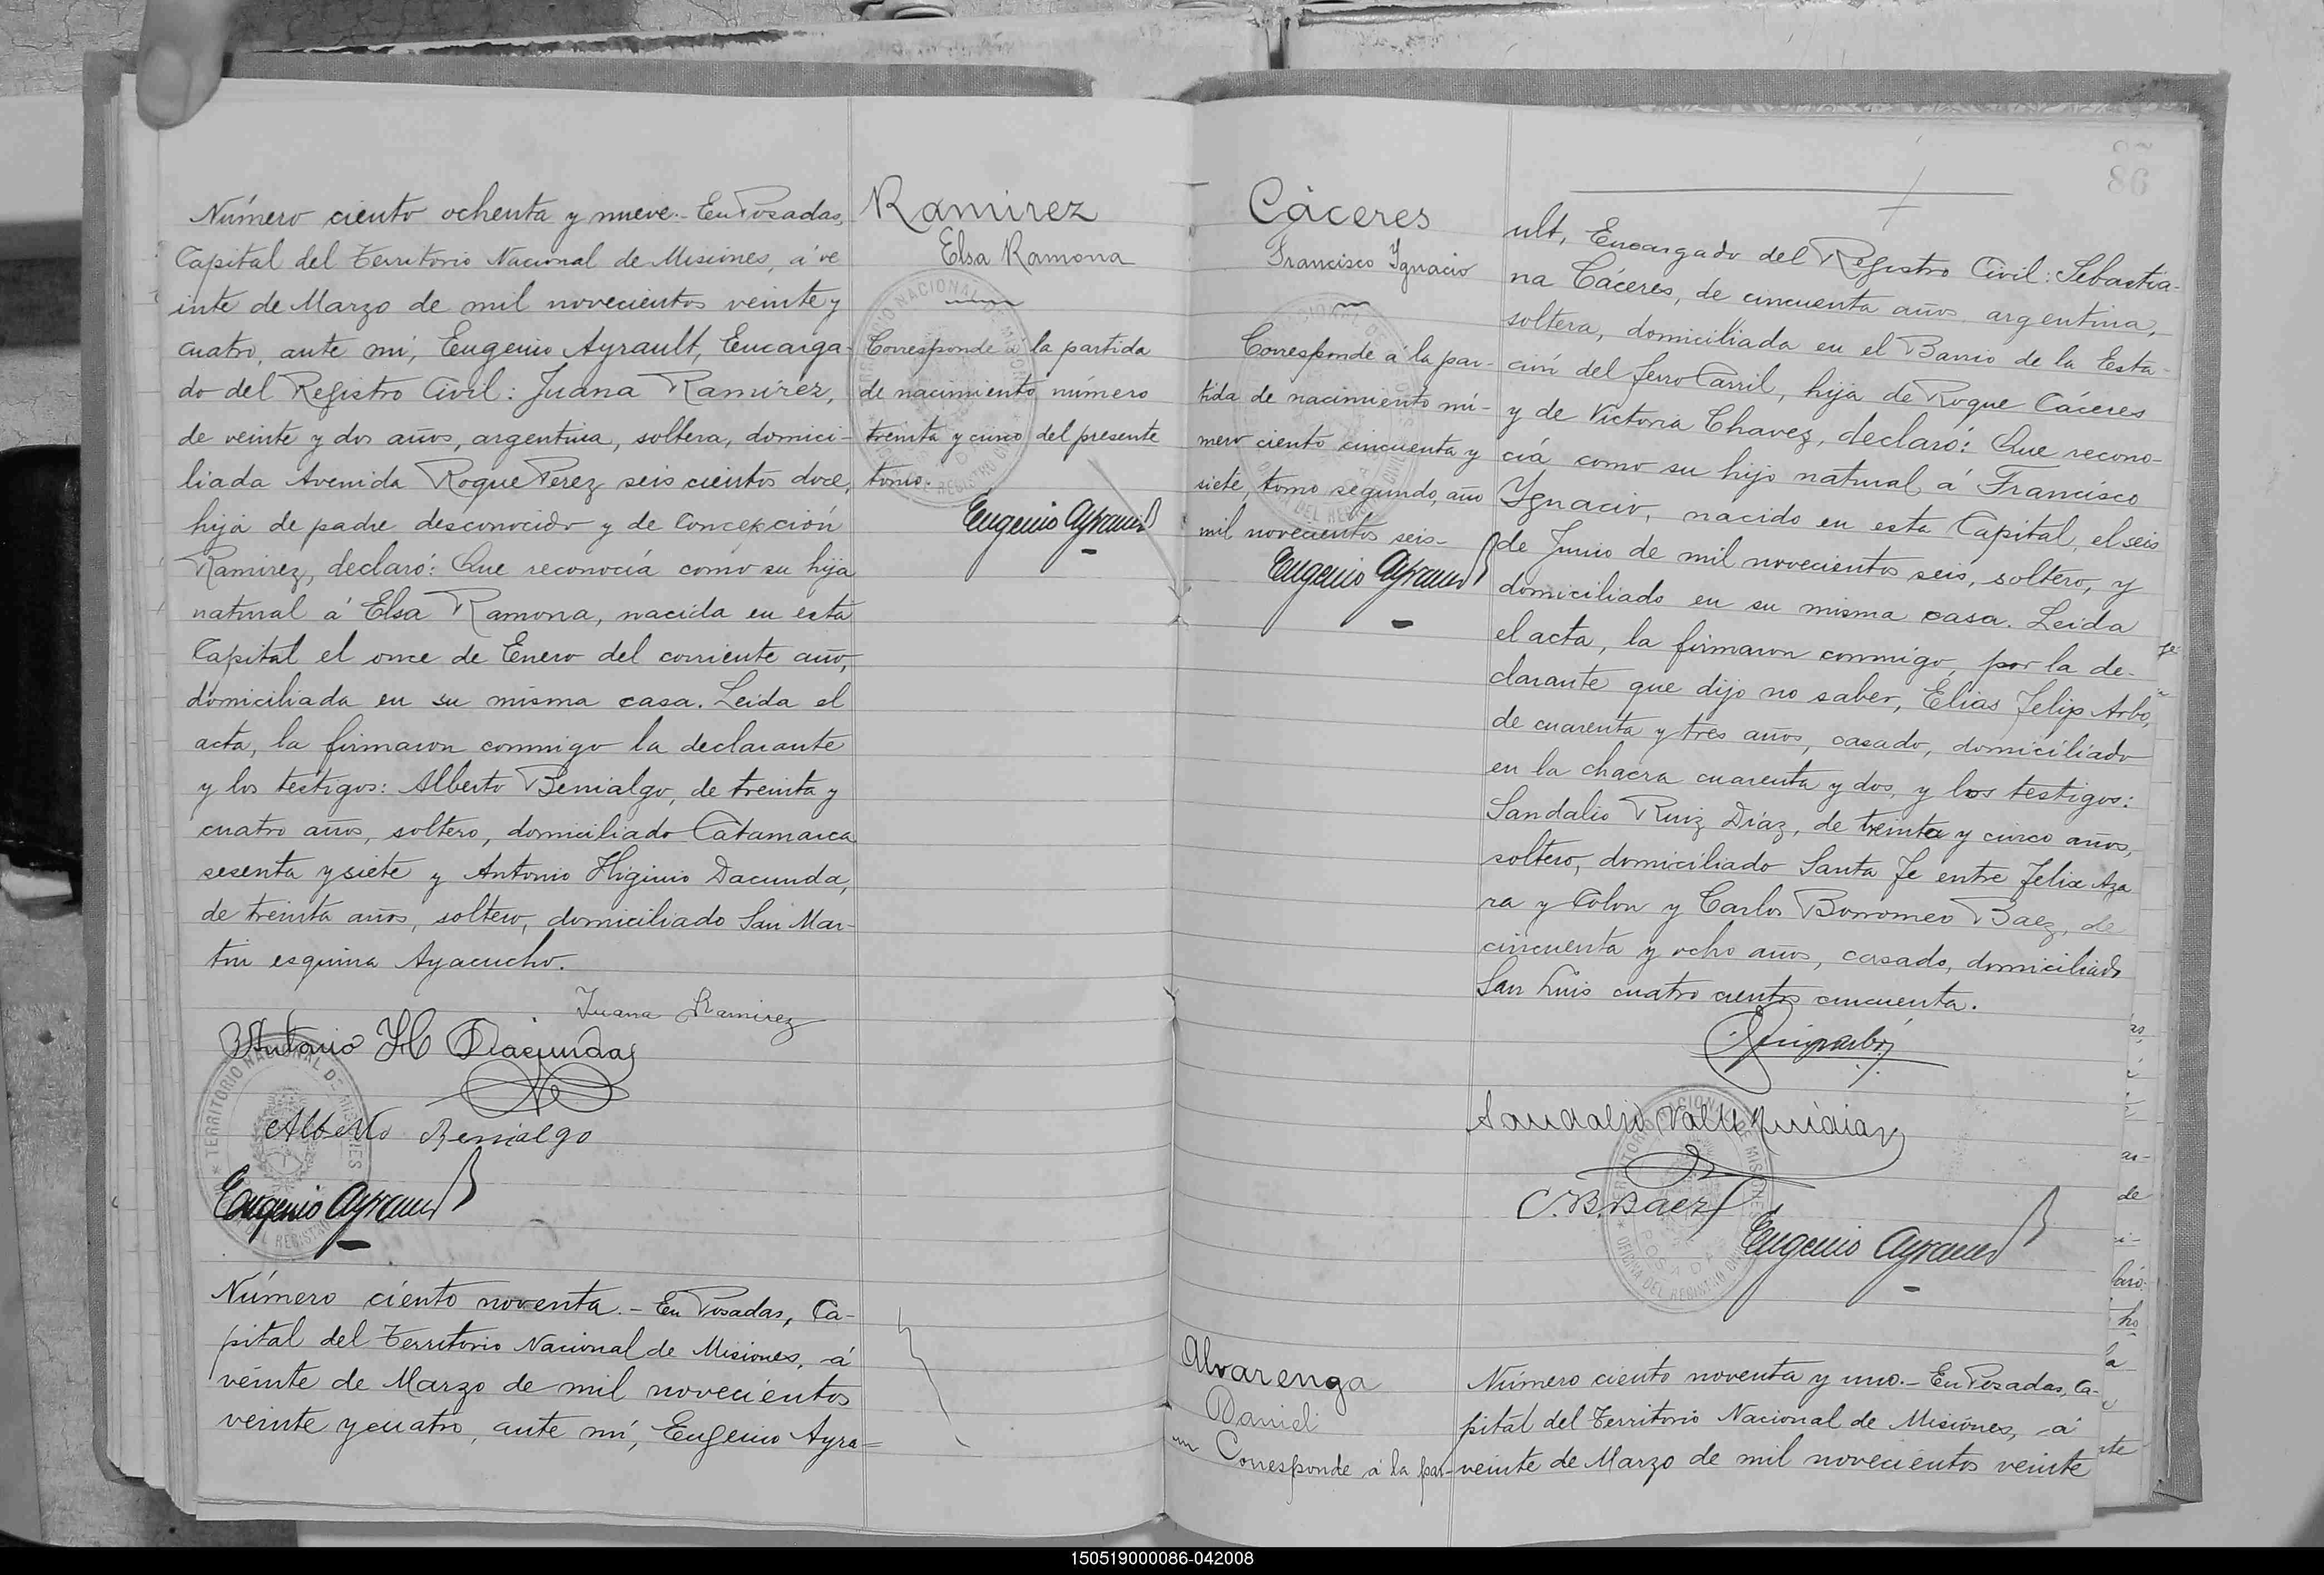 Número ciento ochenta y nueve.- En Posadas,
Capital del Territorio Nacional de Misiones, á ve
inte de Marzo de mil novecientos veinte y
cuatro, ante mí, Eugenio Ayrault, Encarga-
do del Registro Civil: Juana Ramirez,
de veinte y dos años, argentina, soltera, domici-
liada Avenida Roque Perez seis cientos doce,
hija de padre desconocido y de Concepción
Ramirez, declaró: Que reconocía como su hija
natural á Elsa Ramona, nacida en esta
Capital el once de Enero del corriente año,
domiciliada en su misma casa. Leida el
acta, la firmaron conmigo la declarante
y los testigos: Alberto Benialgo, de treinta y
cuatro años, soltero, domiciliado Catamarca
sesenta y siete y Antonio Higinio Dacunda,
de treinta años, soltero, domiciliado San Mar-
tin esquina Ayacucho.
Juana Ramirez
Antonio H Dacunda
Alberto Benialgo
Eugenio Ayrault
TERRITORIO NACIONAL DE MISIONES
Número ciento noventa.- En Posadas, Ca-
pital del Territorio Nacional de Misiones, á
veinte de Marzo de mil novecientos
veinte y cuatro, ante mí, Eugenio Ayra=
Ramirez
Elsa Ramona
Corresponde á la partida
de nacimiento número
treinta y cinco del presente
tomo.
Eugenio Ayrault
Cáceres
Francisco Ygnacio
Corresponde á la par-
tida de nacimiento nú-
mero ciento cincuenta y
siete, tomo segundo, año
mil novecientos seis-
Eugenio Ayrault
86
ult, Encargado del Registro Civil: Sebastia-
na Cáceres, de cincuenta años, argentina,
soltera, domiciliada en el Barrio de la Esta-
ción del Ferro Carril, hija de Roque Cáceres
y de Victoria Chavez, declaró: Que recono-
cía como su hijo natural á Francisco
Ygnacio, nacido en esta Capital, el seis
de Junio de mil novecientos seis, soltero, y
domiciliado en su misma casa. Leida
el acta, la firmaron conmigo, por la de-
clarante que dijo no saber, Elias Felip Arbó,
de cuarenta y tres años, casado, domiciliado
en la chacra cuarenta y dos, y los testigos:
Sandalio Ruiz Diaz, de treinta y cinco años,
soltero, domiciliado Santa Fe entre Felix Aza
ra y Colon y Carlos Borromeo Baez, de
cincuenta y ocho años, casado, domiciliado
San Luis cuatro cientos cincuenta.
C. B. Baez
Eugenio Ayrault
POSADAS
OFICINA DEL REGISTRO CIVIL
Alvarenga
Daniel
Corresponde á la par-
Número ciento noventa y uno.- En Posadas, Ca-
pital del Territorio Nacional de Misiones, á
veinte de Marzo de mil novecientos veinte
150519000086-042008